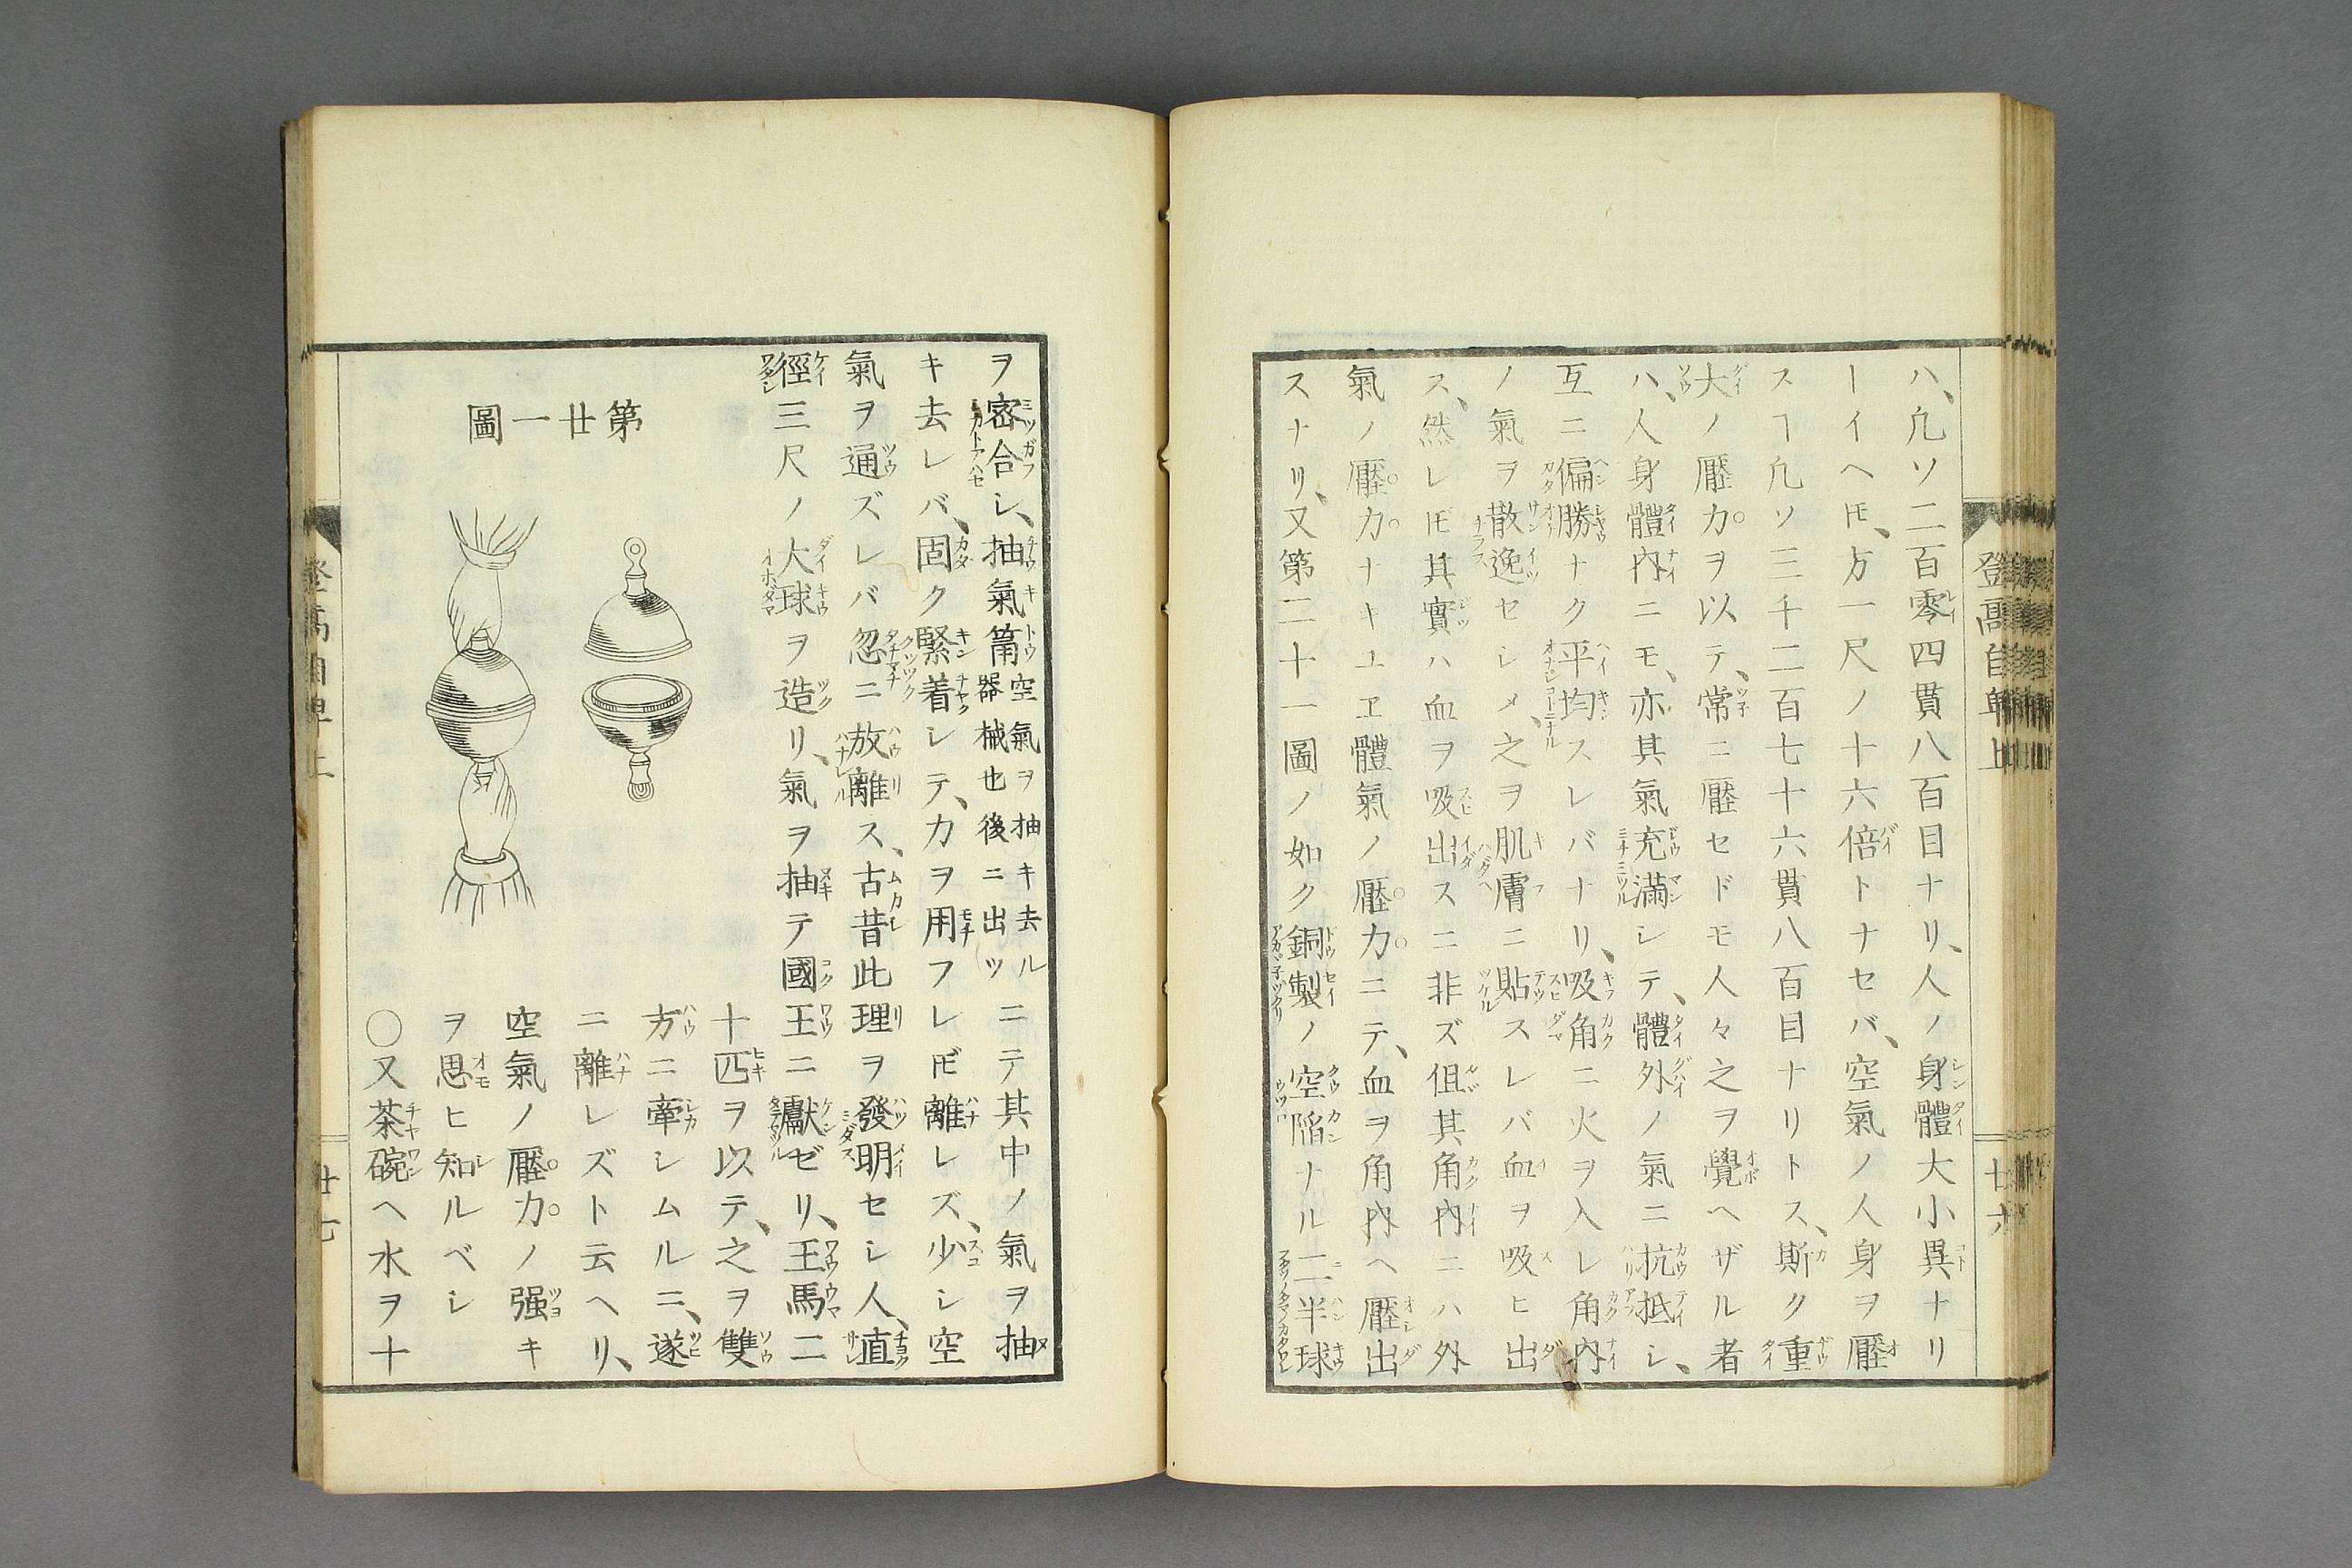 ハ、凢ソ二百零四貫八百目ナリ、人ノ身體大小異ナリ
ーイヘ𪜈、方一尺ノ十六倍トナセバ、空氣ノ人身ヲ壓
スヿ凢ソ三千二百七十六貫八百目ナリトス、斯ク重
大ノ壓力ヲ以テ、常ニ壓セドモ人々之ヲ覺ヘザル者
ハ、人身體內ニモ、亦其氣充滿シテ、體外ノ氣ニ抗抵シ、
互ニ偏勝ナク平均スレバナリ、吸角ニ火ヲ入レ角内
ノ氣ヲ散逸セシメ、之ヲ肌膚ニ貼スレバ血ヲ吸ヒ出
ス、然レ𪜈其實ハ血ヲ吸出スニ非ズ伹其角內ニハ外
氣ノ壓力ナキユヱ體氣ノ壓力ニテ、血ヲ角內ヘ壓出
スナリ、又第二十一圖ノ如ク銅製ノ空陷ナル二半球
登高自卑上
廿六
ヲ密合シ、抽氣筩空氣ヲ抽キ去ル器械也後ニ出ツニテ其中ノ氣ヲ抽
キ去レバ、固ク緊着シテ、力ヲ用フレ𪜈離レズ、少シ空
氣ヲ通ズレバ忽ニ放離ス、古昔此理ヲ發明セシ人、直
徑三尺ノ大球ヲ造リ、氣ヲ抽テ國王ニ獻ゼリ、王馬二
十匹ヲ以テ、之ヲ雙
方ニ牽シムルニ、遂
ニ離レズト云ヘリ、
空氣ノ壓力ノ强キ
ヲ思ヒ知ルベシ
〇又茶碗ヘ水ヲ十
第廿一圖
登高自卑上
廿七